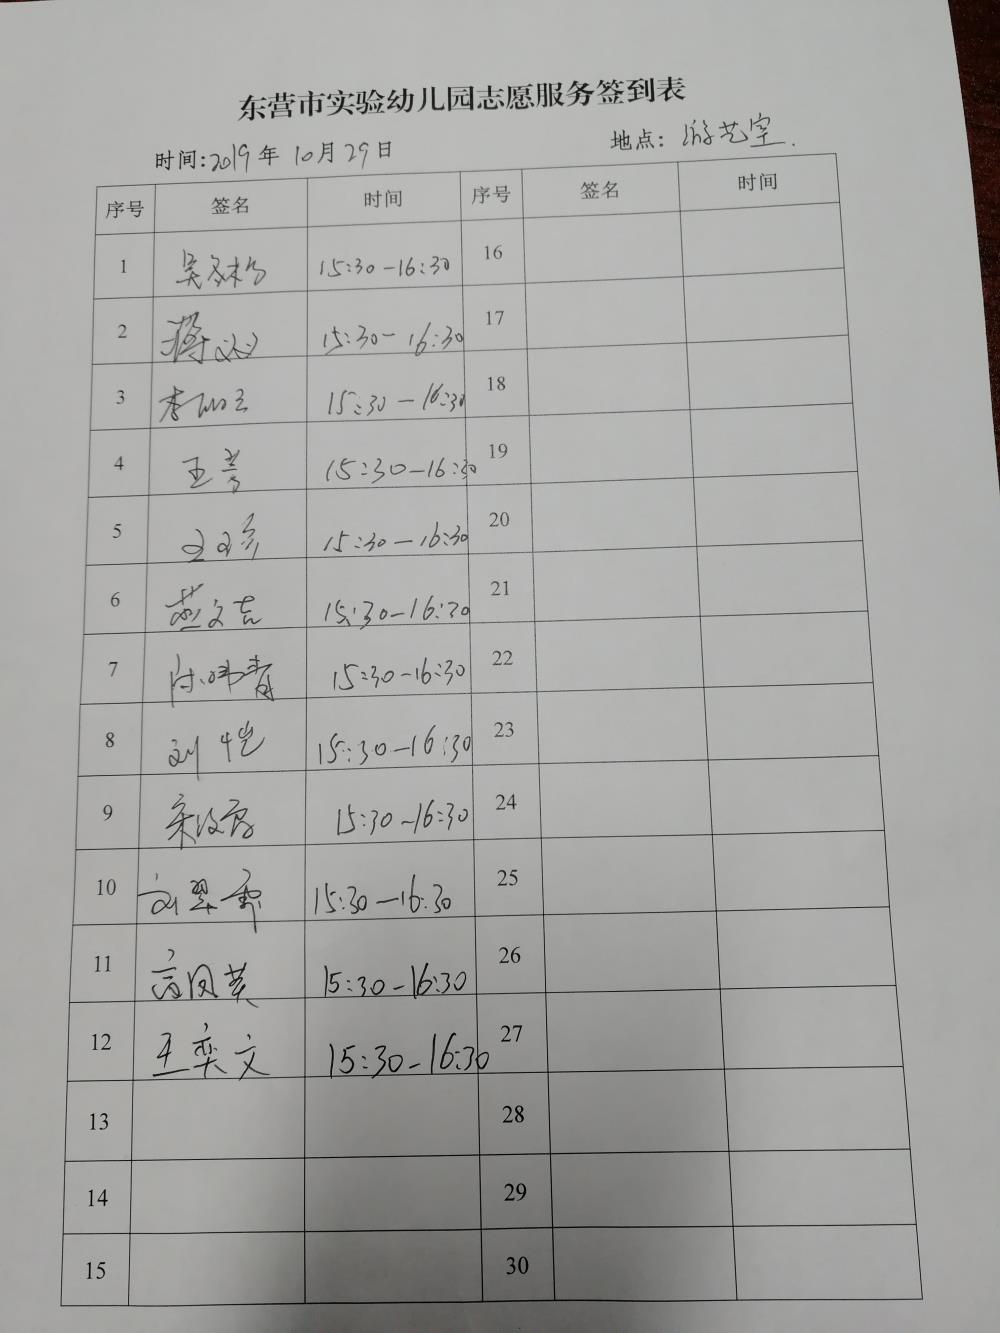 东营市实验幼儿园志愿服务签到表
时间:2019年10月29日 地点：游艺室.
序号 签名 时间 序号 签名 时间
1 15:30-16:30 16
2 蒋 15:30-16:30 17
3 李 15:30-16:30 18
4 王 15:30-16:30 19
5 王 15:30-16:30 20
6 燕文吉 15:30-16:30 21
7 15:30-16:30 22
8 刘恺 15:30-16:30 23
9 宋 15:30-16:30 24
10 刘翠 15:30-16:30 25
11 高凤英 15:30-16:30 26
12 王奕文 15:30-16:30 27
13 28
14 29
15 30